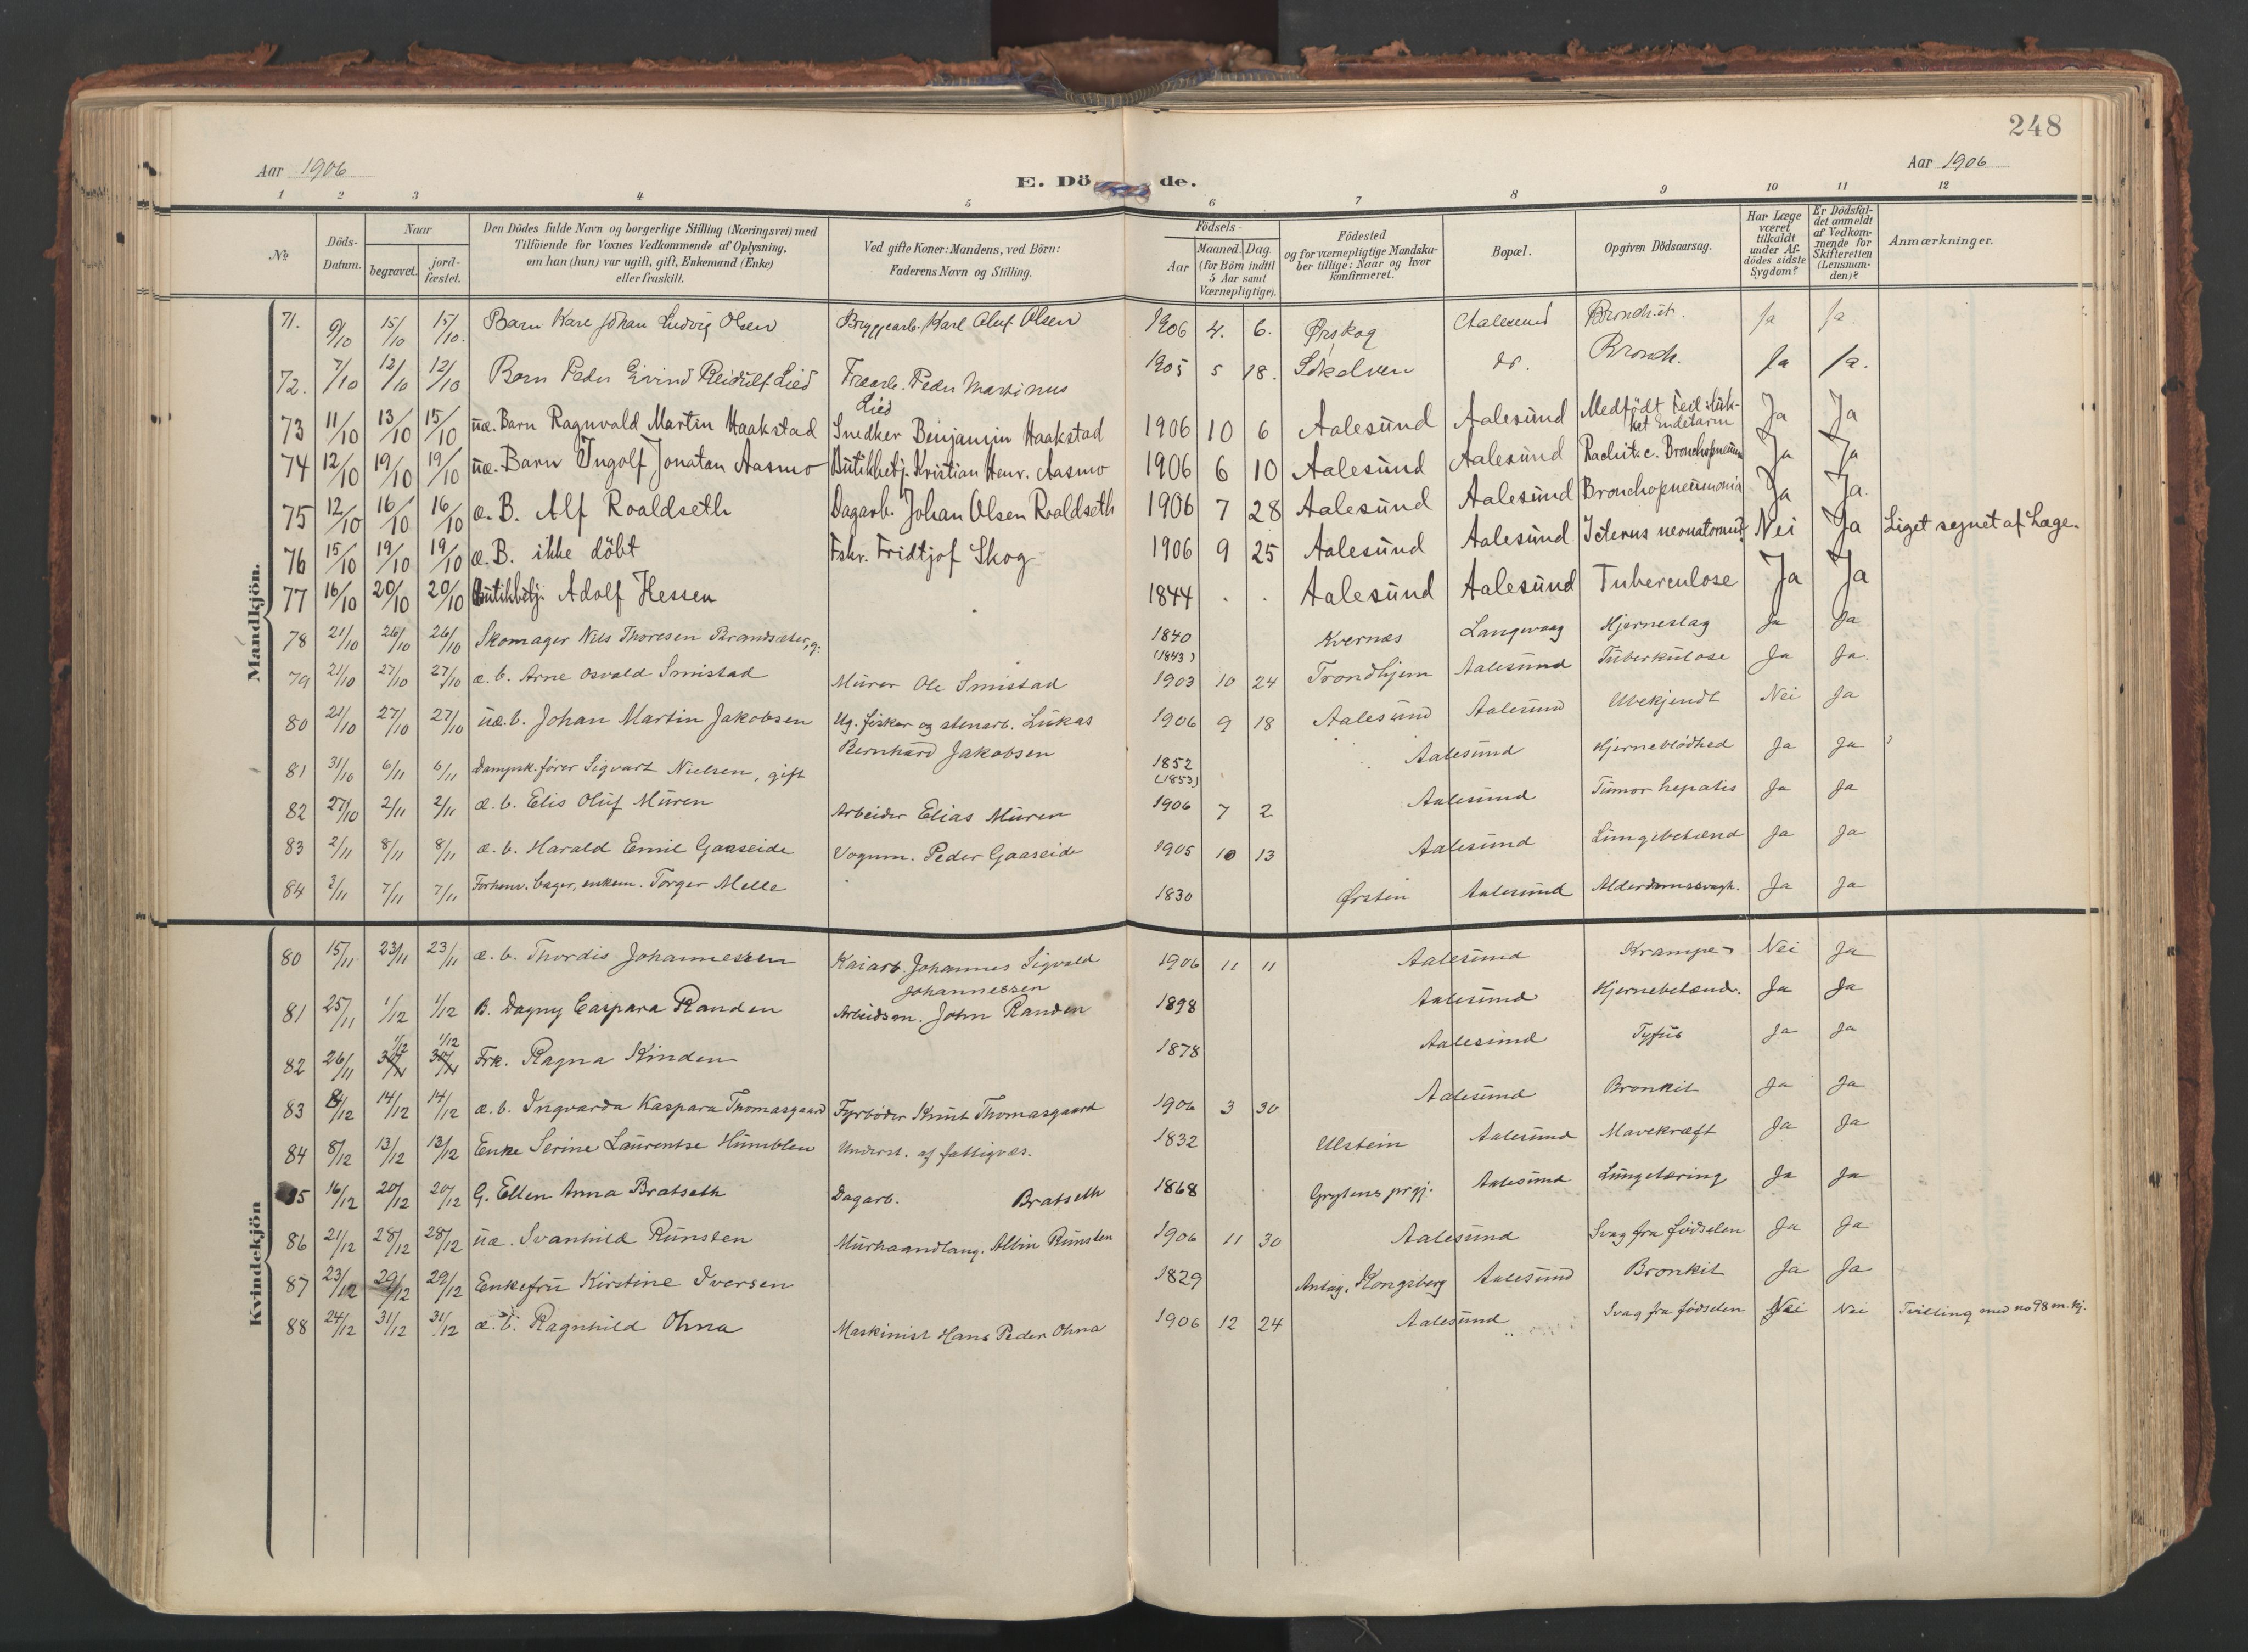 248
Aar 1906
Aar 1906
E. Dö de.
1 2 3 4 5 6 7 8 9 10 11 12
№
Döds-Datum.
Naar
begravet.
jord-fæstet.
Den Dödes fulde Navn og borgerlige Stilling (Næringsvei) med
Tilföiende for Voxnes Vedkommende af Oplysning,
om han (hun) var ugift, gift, Enkemand (Enke)
eller fraskilt.
Ved gifte Koner: Mandens, ved Börn:
Faderens Navn og Stilling.
Födsels-
Aar
Maaned. Dag.
(for Börn indtil
5 Aar samt
Værnepligtige).
Födested
og for værnepligtige Mandska-
ber tillige: Naar og hvor
konfirmeret.
Bopæl.
Opgiven Dödsaarsag.
Har Læge
været
tilkaldt
under Af-
dödes sidste
Sygdom?
Er Dödsfal-
det anmeldt
af Vedkom-
mende for
Skifteretten
(Lensman-
den)?
Anmærkninger.
Mandkjön.
71. 9/10 15/10 15/10. Barn Kare Johan Ludvig Olsen Bryggearb. Karl Oluf Olsen 1906 4. 6. Ørskog Aalesund Bronchit. Ja Ja.
72. 7/10 12/10 12/10 Barn Peder Eivind Reidulf Lied Peder Martinus 1905 5 18. Sökelven do. Bronch. Ja Ja.
Lied
73 11/10 13/10 15/10 uæ. Barn Ragnvald Martin Haakstad Snedker Benjamin Haakstad 1906 10 6 Aalesund Aalesund Medfödt Feil i luk-
ket Endetarm Ja Ja
74 12/10 19/10 19/10 uæ. Barn Ingolf Jonatan Aasmo Butikbetj. Kristian Henr. Aasmo 1906 6 10 Aalesund Aalesund Rachit. c. Bronchopneum Ja Ja
75 12/10 16/10 16/10 æ. B. Alf Roaldseth Dagarb. Johan Olsen Roaldseth 1906 7 28 Aalesund Aalesund Bronchopneumonia Ja Ja.
76 15/10 19/10 19/10 æ. B. ikke döbt Fskr. Fridtjof Skog 1906 9 25 Aalesund Aalesund Icterus neonatorum? Nei Ja Liget synet af Læge.
77 16/10 20/10 20/10 Butikbetj. Adolf Hessen 1844 . . Aalesund Aalesund Tuberculose Ja Ja
78 21/10 26/10 26/10 Skomager Nils Thoresen Brandsæter, g. 1840 Kvernæs Langevaag Hjerneslag Ja Ja
(1843)
79 21/10 27/10 27/10 æ. b. Arne Osvald Smistad Murer Ole Smistad 1903 10 24 Trondhjem Aalesund Tuberkulose Ja Ja.
80 21/10 27/10 27/10 uæ. b. Johan Martin Jakobsen Ug. fisker og stenarb. Lukas 1906 9 18 Aalesund Aalesund Ubekjendt Nei Ja
Bernhard Jakobsen
81 31/10 6/11 6/11 Dampsk. fører Sigvart Nielsen, gift 1852 Aalesund Hjerneblødhed Ja Ja
(1853)
82 27/10 2/11 2/11 æ. b. Elis Oluf Muren Arbeider Elias Muren 1906 7 2 Aalesund Tumor hepatis Ja Ja
83 2/11 8/11 8/11 æ. b. Harald Emil Gaaseide Vognm. Peder Gaaseide 1905 10 13 Aalesund Lungebetænd Ja Ja
84 3/11 7/11 7/11 Forhenv. bager, enkem. Torger Melle 1830 Ørsten Aalesund Alderdomssvagh. Ja Ja
Kvindekjön
80 15/11 23/11 23/11 æ. b. Thordis Johannessen Kaiarb. Johannes Sigvald 1906 11 11 Aalesund Krampe Nei Ja
Johannessen
81 25/11 1/12 1/12 B. Dagny Caspara Randen Arbeidsm. John Randen 1898 Aalesund Hjernebetænd. Ja Ja
1/12 1/12
82 26/11 30/11 30/11 Frk. Ragna Kinden 1878 Aalesund Tyfus Ja Ja
83 8/12 14/12 14/12 æ. b. Ingvarda Kaspara Thomasgaard Fyrbøder Knut Thomasgaard 1906 3 30 Aalesund Bronkit Ja Ja
84 8/12 13/12 13/12 Enke Serine Laurentse Humblen Underst. af fattigvæs. 1832 Ulstein Aalesund Mavekræft Ja Ja
85 16/12 20/12 20/12 G. Ellen Anna Bratseth Dagarb. Bratseth 1868 Grytens prgj. Aalesund Lungetæring Ja Ja
86 21/12 28/12 28/12 uæ. Svanhild Runsten Murhaandlang. Albin Runsten 1906 11 30 Aalesund Svag fra fødselen Ja Ja
87 23/12 29/12 29/12 Enkefru Kirstine Iversen 1829 Antag. Kongsberg Aalesund Bronkit Ja Ja
88 24/12 31/12 31/12 æ. b. Ragnhild Ohna Maskinist Hans Peder Ohna 1906 12 24 Aalesund Svag fra fødselen Nei Nei Tvilling med no 98 m. kj.